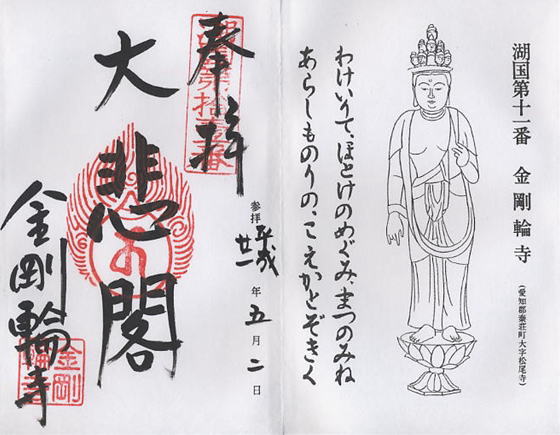 湖国第十一番 金剛輪寺
(愛知郡秦荘町大字松尾寺)
わけいりて、ほとけのめぐみ、まつのみね
あらしものりの、こえかとぞきく
奉拝
参拝 平成廿一年五月二日
大悲閣
金剛輪寺
金剛
輪寺